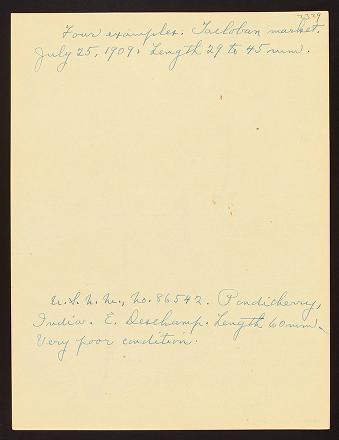 2329
Four examples. Tacloban market.
July 25, 1909. Length 29 to 45 mm.
U.S.N.M., No. 86542. Pondicherry,
India. E. Deschamp. Length 60 mm.
Very poor condition.